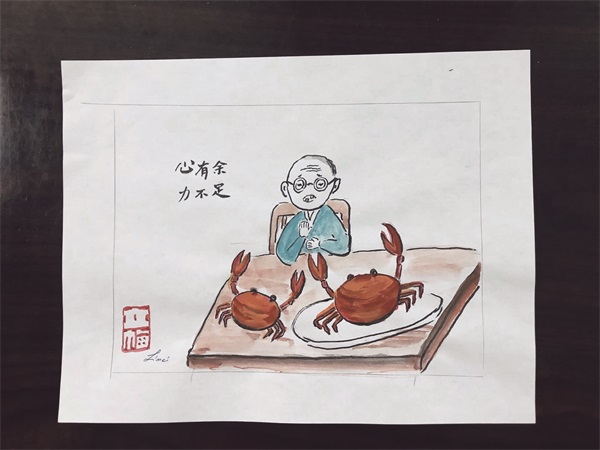 心有余
力不足
立梅
Limei